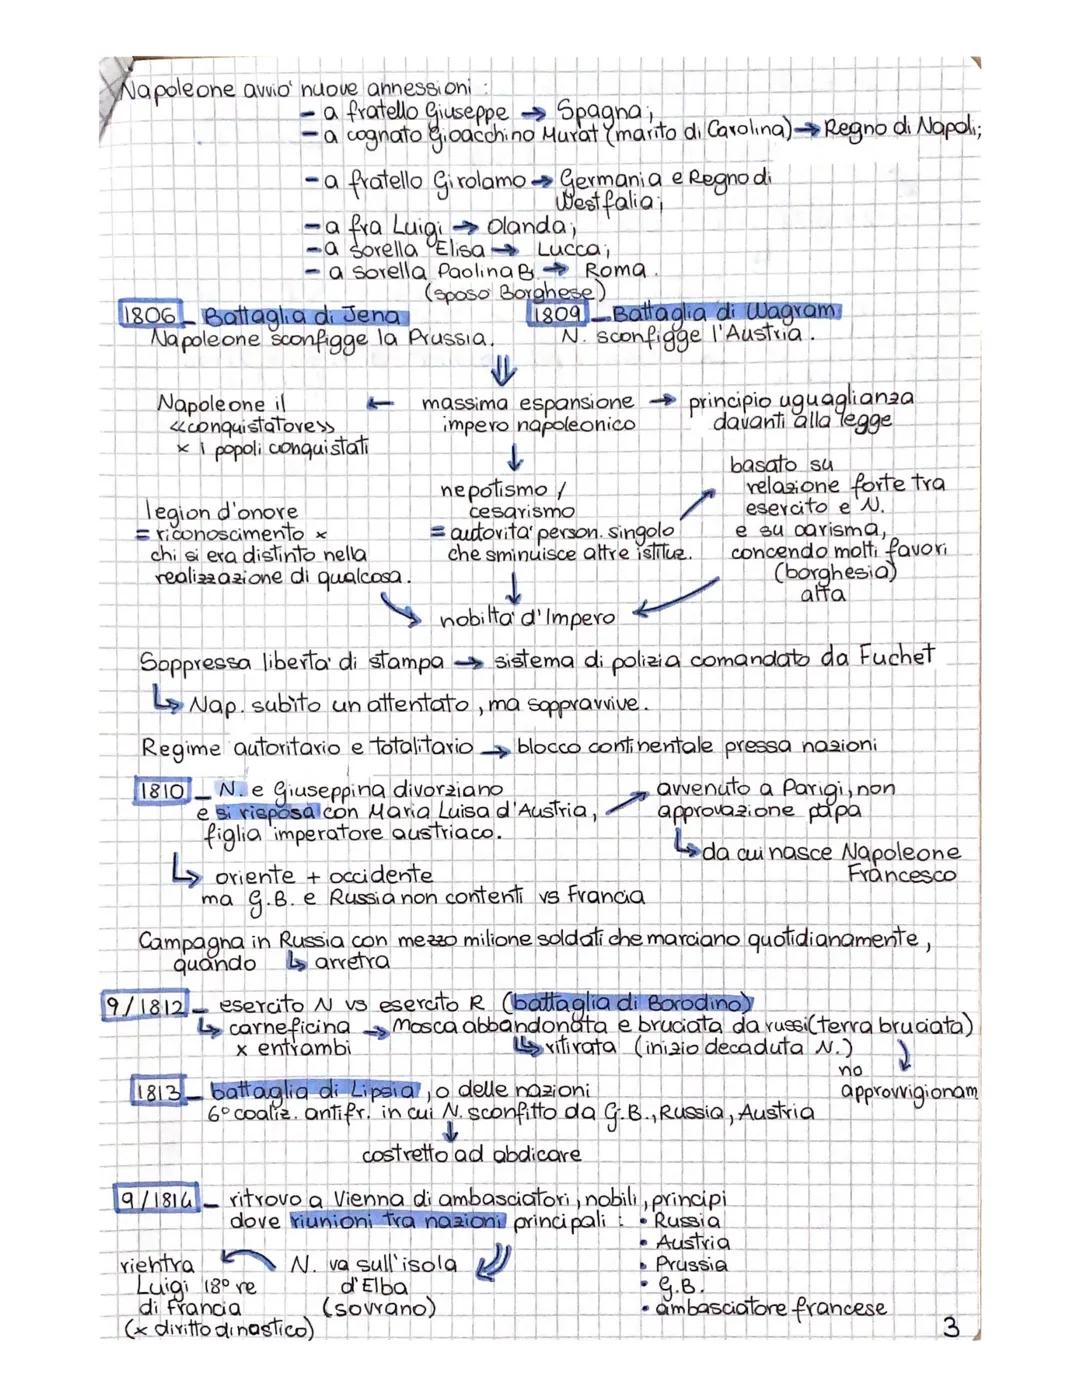 Napoleone avviò nuove annessioni :
- a fratello Giuseppe → Spagna;
- a cognato Gioacchino Murat (marito di Carolina) → Regno di Napoli;
- a fratello Girolamo → Germania e Regno di
Westfalia;
- a fra Luigi → Olanda;
- a sorella Elisa → Lucca;
- a sorella Paolina B → Roma.
(sposo Borghese)
1806 - Battaglia di Jena
Napoleone sconfigge la Prussia.
1809 - Battaglia di Wagram
N. sconfigge l'Austria.
⇓
Napoleone il
<<conquistatore>>
x i popoli conquistati
← massima espansione →
impero napoleonico
principio uguaglianza
davanti alla legge
↓
legion d'onore
= riconoscimento x
chi si era distinto nella
realizzazione di qualcosa.
nepotismo /
cesarismo
= autorità person. singolo
che sminuisce altre istituz.
basato su
relazione forte tra
esercito e N.
e su carisma,
concendo molti favori
(borghesia)
alta
↓
nobiltà d'Impero
Soppressa libertà di stampa → sistema di polizia comandato da Fuchet
↳ Nap. subìto un attentato, ma soppravvive.
Regime autoritario e totalitario → blocco continentale pressa nazioni
1810 - N. e Giuseppina divorziano
e si risposa con Maria Luisa d'Austria,
figlia imperatore austriaco.
→ avvenuto a Parigi, non
approvazione papa
↳ da cui nasce Napoleone
Francesco
↳ oriente + occidente
ma G.B. e Russia non contenti vs Francia
Campagna in Russia con mezzo milione soldati che marciano quotidianamente,
quando ↳ arretra
9/1812 - esercito N vs esercito R (battaglia di Borodino)
↳ carneficina → Mosca abbandonata e bruciata da russi (terra bruciata)
x entrambi
↳ ritirata (inizio decaduta N.)
no
approvvigionam
1813 - battaglia di Lipsia, o delle nazioni
6° coaliz. antifr. in cui N. sconfitto da G.B., Russia, Austria
↓
costretto ad abdicare
9/1814 - ritrovo a Vienna di ambasciatori, nobili, principi
dove riunioni tra nazioni principali : • Russia
• Austria
• Prussia
• G.B.
• ambasciatore francese
N. va sull'isola
d'Elba
(sovrano)
rientra
Luigi 18° re
di Francia
(x diritto dinastico)
3